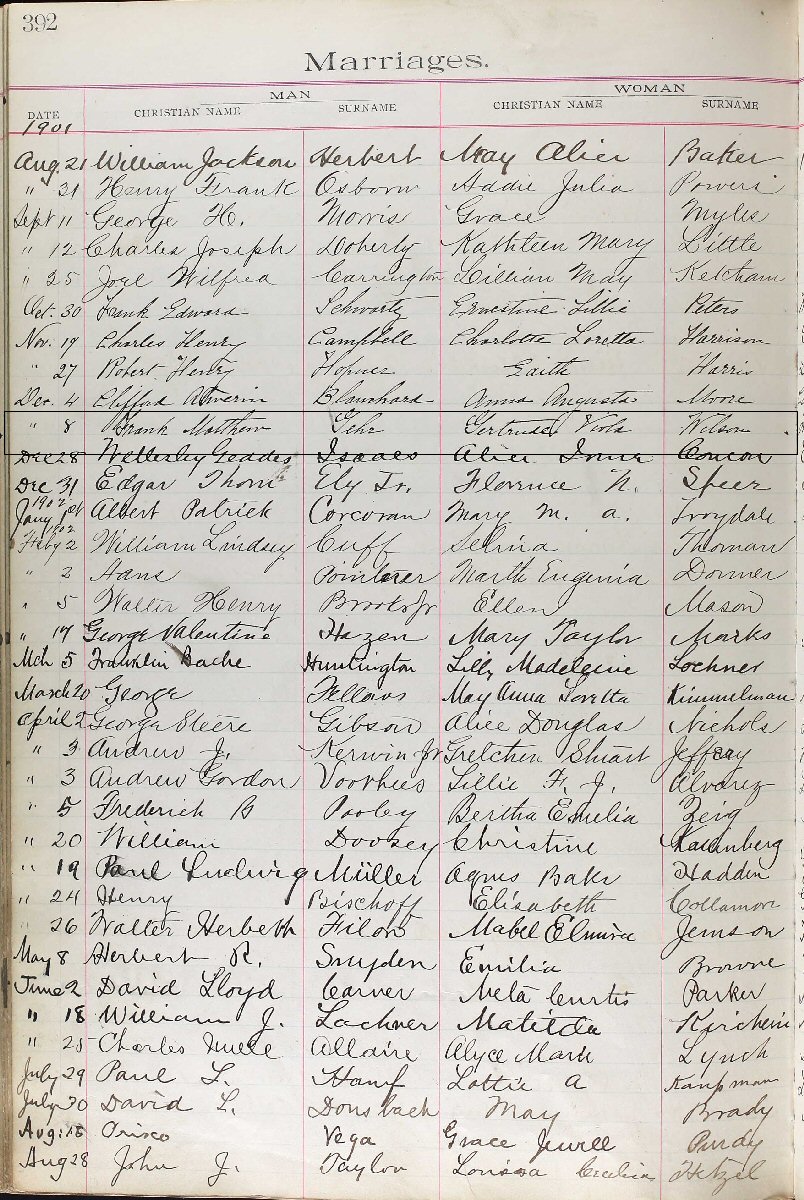 392
Marriages.
MAN WOMAN
DATE CHRISTIAN NAME SURNAME CHRISTIAN NAME SURNAME
1901
Aug. 21 William Jackson Herbert May Alice Baker
" 31 Henry Frank Osborn Addie Julia Powers
Sept 11 George H. Morris Grace Myles
" 12 Charles Joseph Doherty Kathleen Mary Little
" 25 Joel Wilfred Carrington Lillian May Ketcham
Oct. 30 Frank Edward Schwartz Ernestine Lillie Peters
Nov. 19 Charles Henry Campbell Charlotte Loretta Harrison
" 27 Robert Henry Edith Harris
Dec. 4 Clifford Blanchard Anna Augusta Moore
" 8 Frank Matthew Gehr Gertrude Viola Wilson
Dec 28 Wellesley Geddes Isaacs Alice Irma
Dec 31 Edgar Thorn Ely Jr. Florence N. Speer
1902
Jany 1st Albert Patrick Corcoran Mary M. A.
1902
Feby 2 William Lindsey Cuff Selina Thoman
" 2 Hans Marth Eugenia Donner
" 5 Walter Henry Brooks Jr Ellen Mason
" 17 George Valentine Hazen Mary Taylor Marks
Mch 5 Franklin Bache Huntington Lilly Madeleine Lochner
March 20 George Fellows May Anna Loretta Kimmelman
April 2 George Steere Gibson Alice Douglas Nichols
" 3 Andrew J. Kerwin Jr Gretchen Stuart Jeffray
" 3 Andrew Gordon Voorhies Lillie F. J. Alvarez
" 5 Frederick B Pooley Bertha Emelia Zeig
" 20 William Doosey Christine
" 19 Paul Ludwig Müller Agnes Baker Haddin
" 24 Henry Bischoff Elisabeth Collamore
" 26 Walter Herbeth Filor Mabel Elmira Jemson
May 8 Herbert R. Snyden Emilia Browne
June 2 David Lloyd Carver Meta Curtis Parker
" 18 William J. Lochner Matilda
" 25 Charles Allaire Alyce Marie Lynch
July 29 Paul L. Hanf Lottie A Kaupman
July 30 David L. Donsbach May Brady
Aug: 15 Prisco Vega Grace Jewell Purdy
Aug 28 John J. Taylor Louisa Cecilia Hetzel